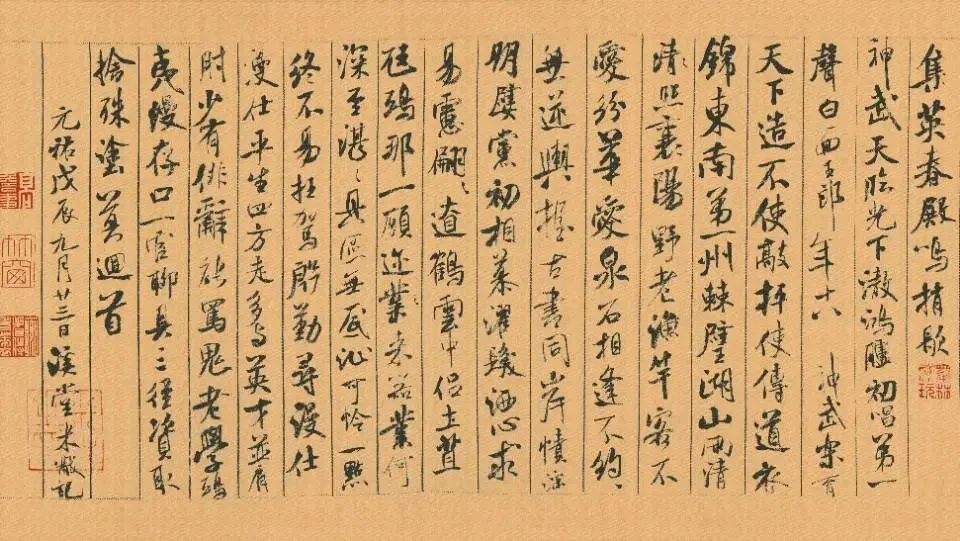 集英春殿鳴捎歇
神武天臨光下澈鴻臚初唱第一
聲白面玉郎年十八神武樂育
天下造不使敲抨使傳道衣
錦東南第一州棘璧湖山兩清
清照襄陽野老漁竿客不
愛紛華愛泉石相逢不約〻
無逆輿握古書同岸幘淫
朋嬖黨初相慕濯髮洒心求
易慮翩〻遼鶴雲中侶土苴
尪鵄那一顧邇業來器業何
深至湛〻具區無底沚可怜一點
終不易枉駕殷勤尋漫仕
漫仕平生四方走多與英才並肩
肘少有俳辭能罵鬼老學鵄
夷漫存口一官聊具三徑資取
捨殊塗莫迴首
元祐戊辰九月廿三日溪堂米黻記